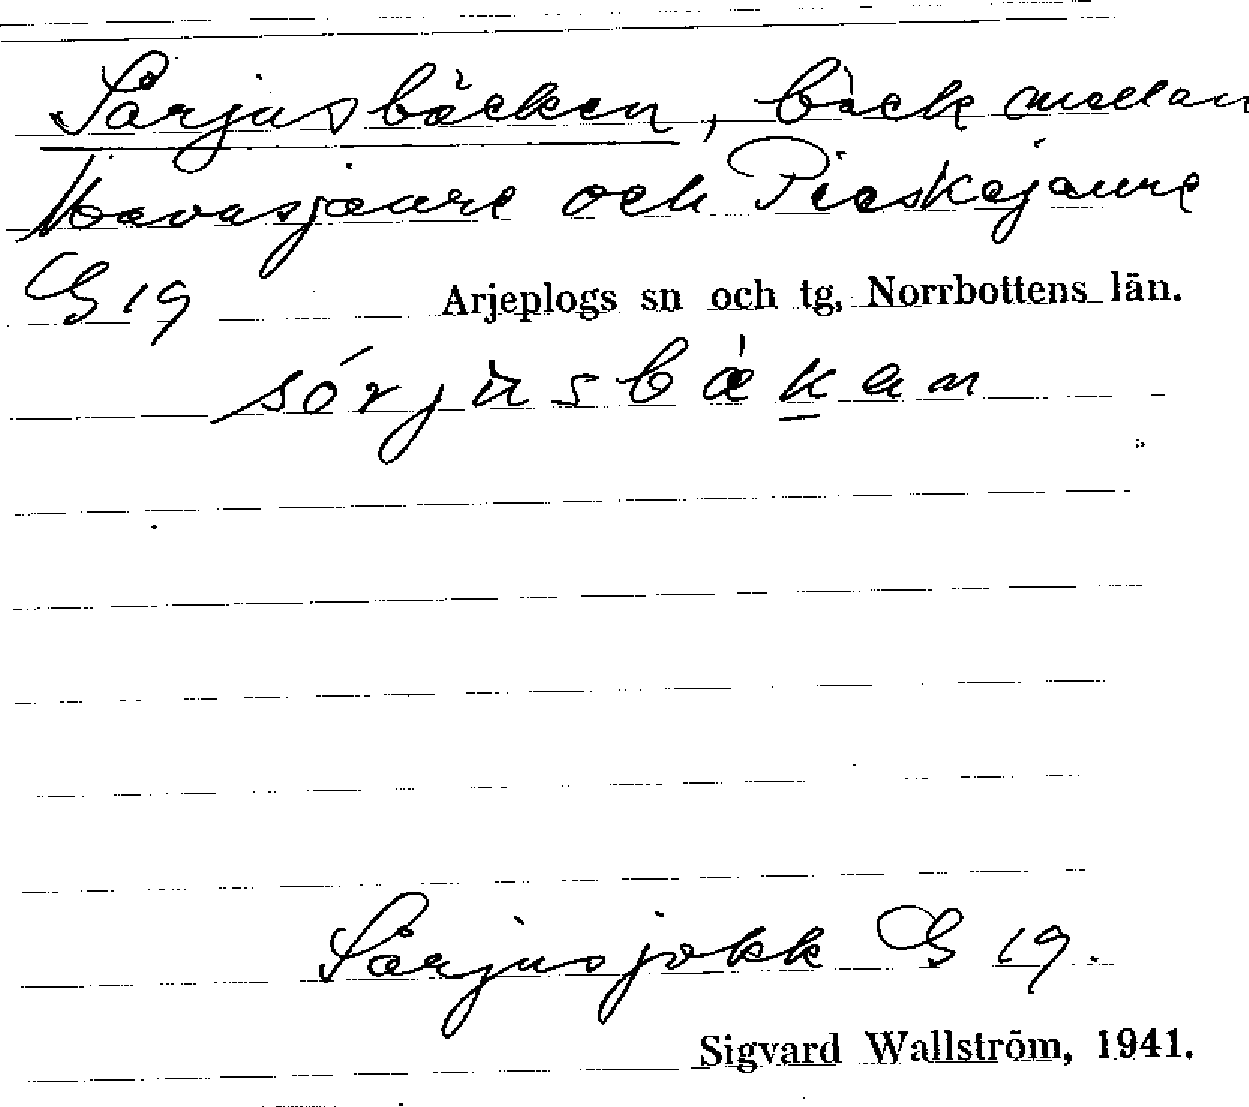 Sårjusbäcken, bäck mellan
Mavasjaure och Pieskejaure
G 19 Arjeplogs sn och tg, Norrbottens län.
sórjusbäkan
Sårjusjokk G 19.
Sigvard Wallström, 1941.